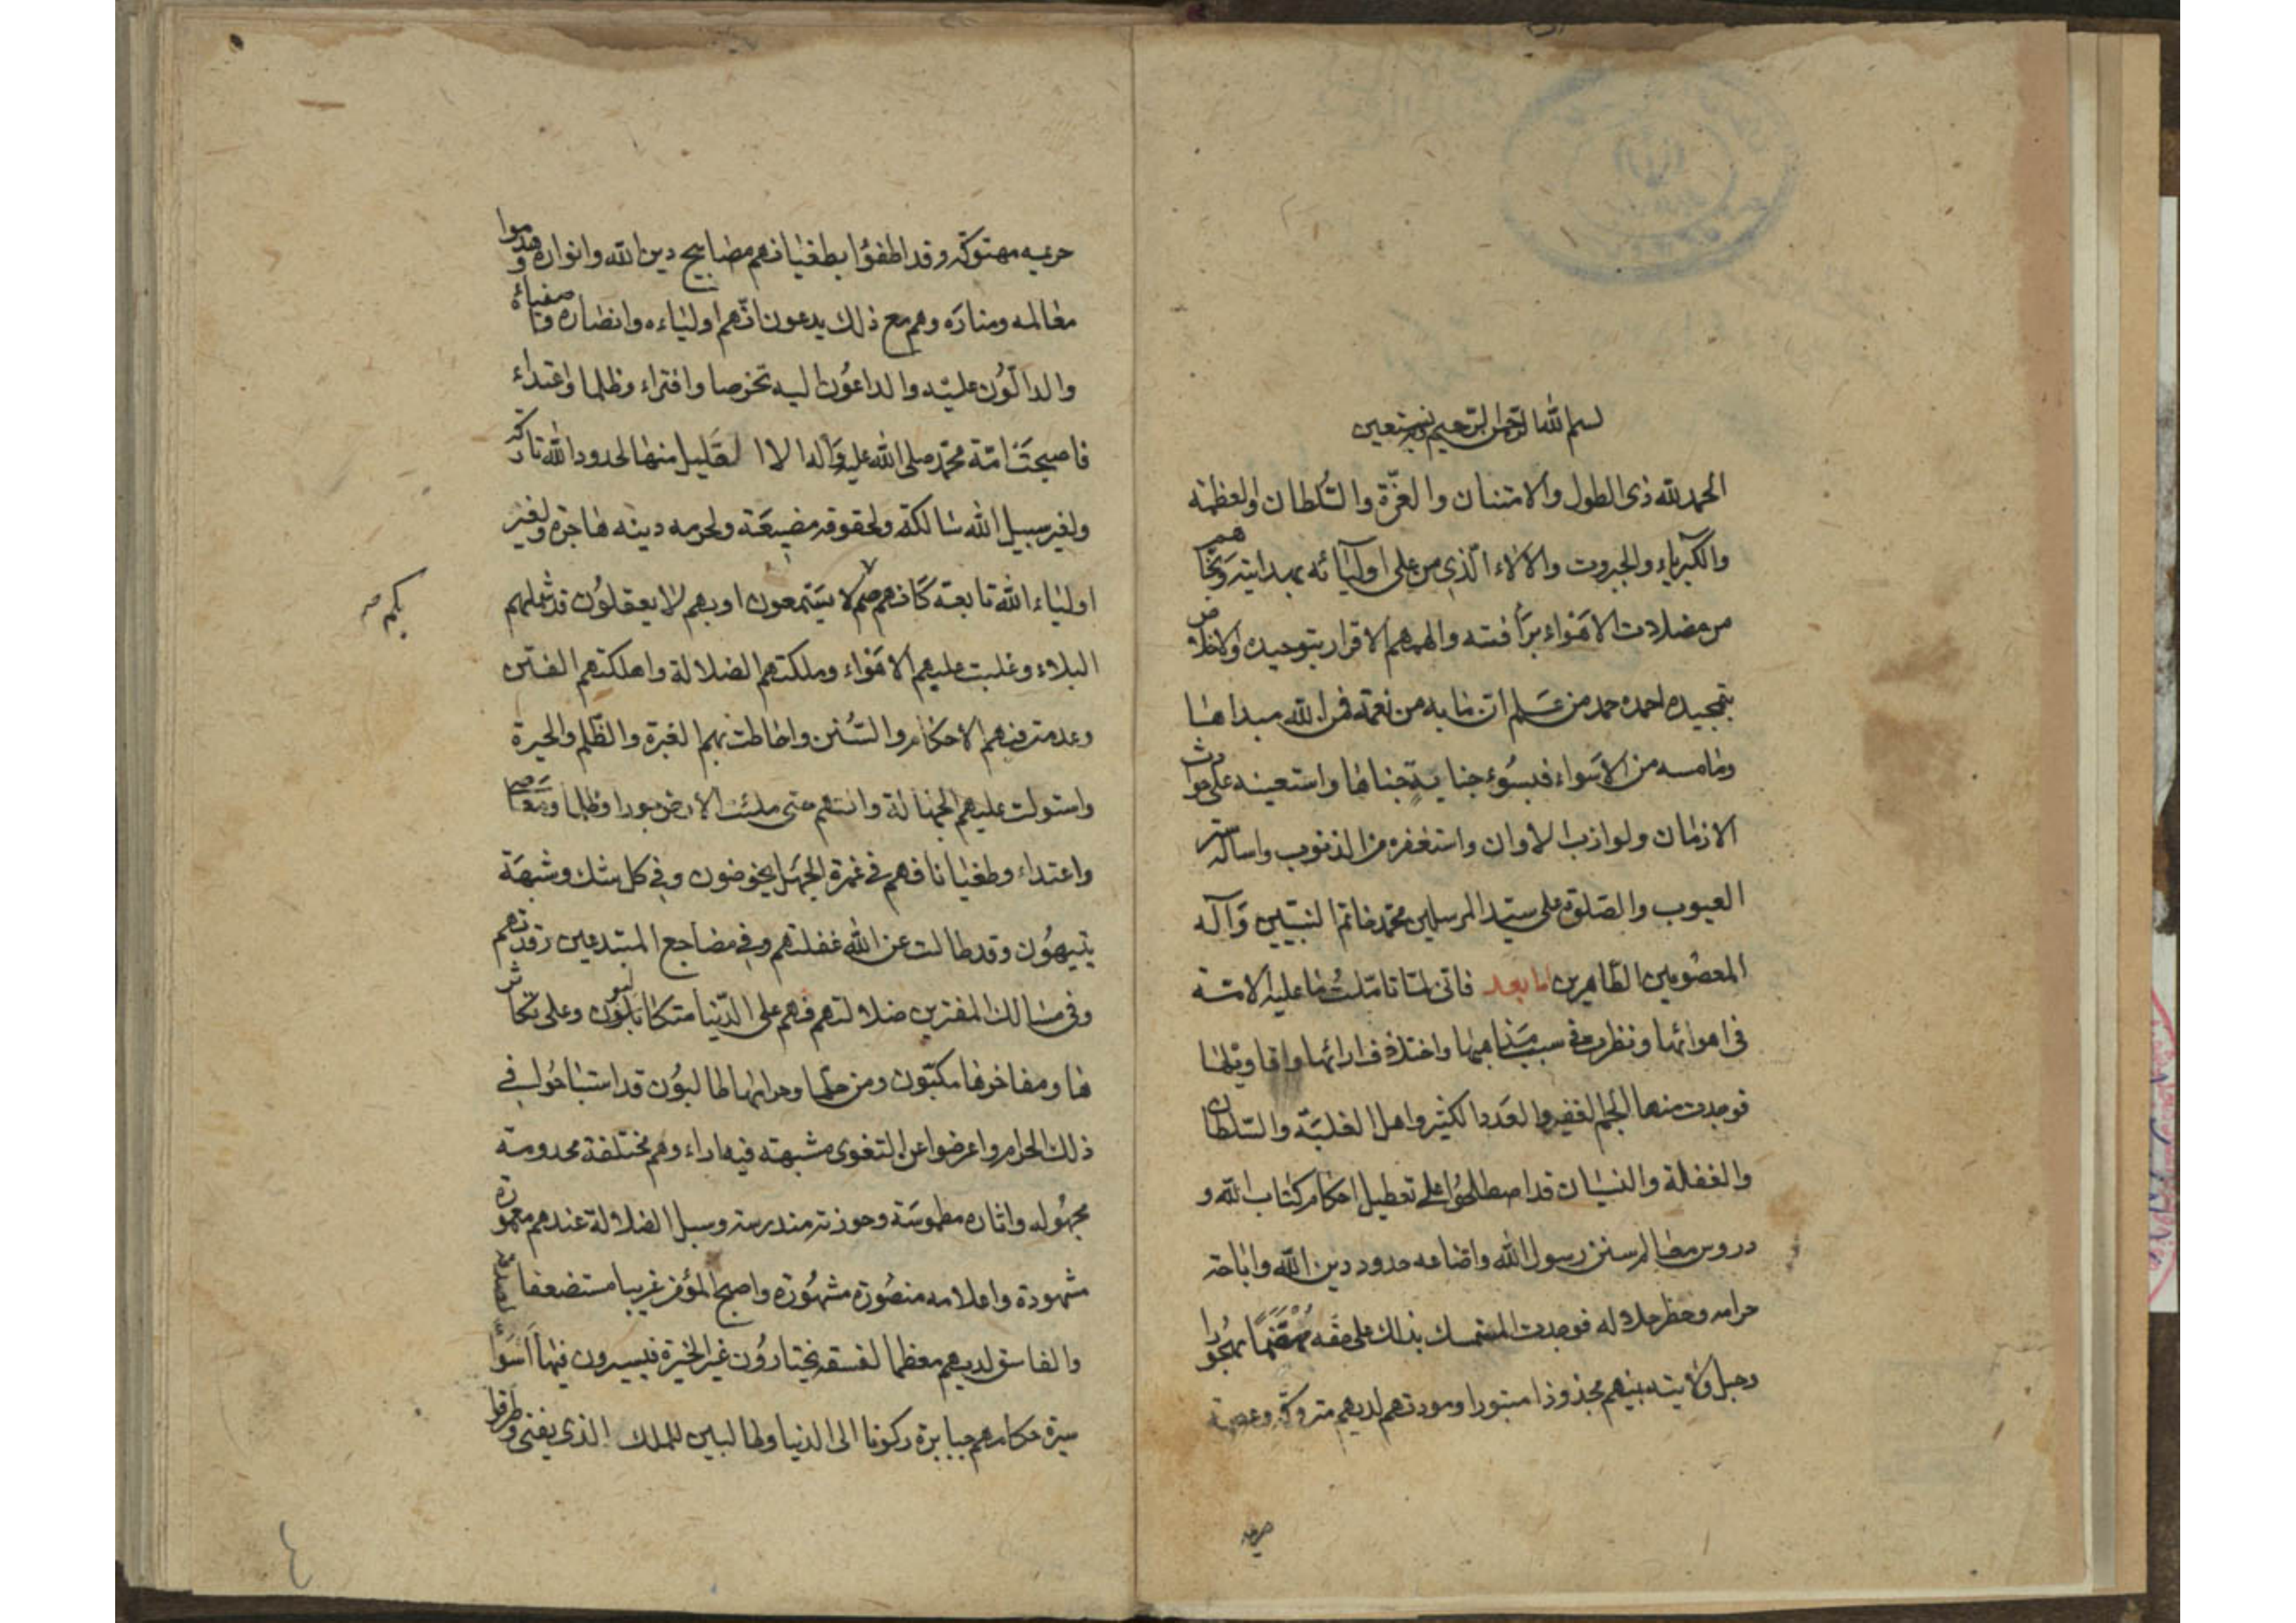 بسم الله الرحمن الرحيم وبه نستعين
الحمد لله ذى الطول والامتنان والعزّة والسُّلطان والعظمة
والكبرياء والجبروت والالاء الّذى من على اوليائه بهدايته ونجّاهم
من مضلات الاهَواء برَأفته والهمهم الاقرار بتوحيده والاخلاص
بتمجيده احمده حمد من عَلم ان ما به من نعمة فمن الله مبداها
وما مسه من الاسَواء فبسُوء جناية جناها واستعينه على حوادث
الازمان ولوازب الأوان واستغفره من الذنوب واساله ستر
العيوب والصّلوة على سيّد المرسلين محمّد خاتم النبيّين وَآله
المعصُومين الطّاهرين اما بعد فانّى لمّا تامّلتُ ما عليه الامّة
فى اهوائها ونظرت فى سبب مَذاهبها واختلاف ارائها واقاويلها
فوجدت منها الجم الغفير والعَدد الكثير واهل الغلبَة والسّلطان
والغفلة والنسيان قد اصطلحُوا على تعطيل احكام كتاب الله و
دروس معالم سنن رسول الله واضاعه حدود دين الله واباحة
حرامه وحظر حلاله فوجدت المتمسك بذلك على حقه مهتَضَمًا مهجُورا
وحبل ولايته بينهم مجذوذا مبتورا ومودتهم لديهم متروكة وعصمة
حريمه مهتوكة وقد اطفؤا بطغيانهم مصابيح دين الله وانواره وهدموا
معالمه ومنارَه وهم مع ذلك يدعون انّهم اولياءه وانصاره واصفياءه
والدالّون عليْه والداعُون اليه تخرصا وافتراء وظلما واعتداء
فاصبحَت امّة محمّد صلى الله عليه وَآله الا القليل منها لحدود الله تاركة
ولغير سبيل الله سالكة ولحقوقه مضيعَة ولحرمه دينه هاجرة ولغير
اولياء الله تابعة كَانهم صم لا يسَتمعون او بهم لا يعقلوُن قد شملهم
بكم صح
البلاء وغلبت عليهم الاهَواء وملكتهم الضلالة واهلكتهم الفتن
وعدمت فيهم الاحكام والسُنن واحاطت بهم الغبرة والظلم والحيرة
واستولت عليهم الجهالة وانتهم حتى ملئت الارض جورا وظلما ومَعاصى
واعتداء وطغيانا فهم فى غمرة الجهَل يخوضون وفى كل شك وشبهَة
يتيهُون وقد طالت عن الله غفلتهم وفى مضاجع المبتدعين رقدتهم
وفى مسالك المفترين ضلالتهم فهم على الدّنيا متكالبون وعلى تكاثر
ها ومفاخرها مكبّون ومن حلها وحرامها طالبوُن قد استباحُوا فى
ذلك الحرام واعرضوا عن التقوى مشبهة فيه اراء وهم مختلفة محدومة
مجهُوله واثاره مطموسَة وحوزته مندرسة وسبل الضلالة عندهم معمورة
مشهودة واعلامه منصُورة مشهُورة واصبح المؤمن غريبا مستضعفا
والفاسق لديهم معظما لفسقه يختاروُن غير الخيرة فيسيرون فيها اَسَوأ
سيرة حكامهم جبابرة ركونا الى الدنيا وطالبين للملك الذى يفنى وطرقا